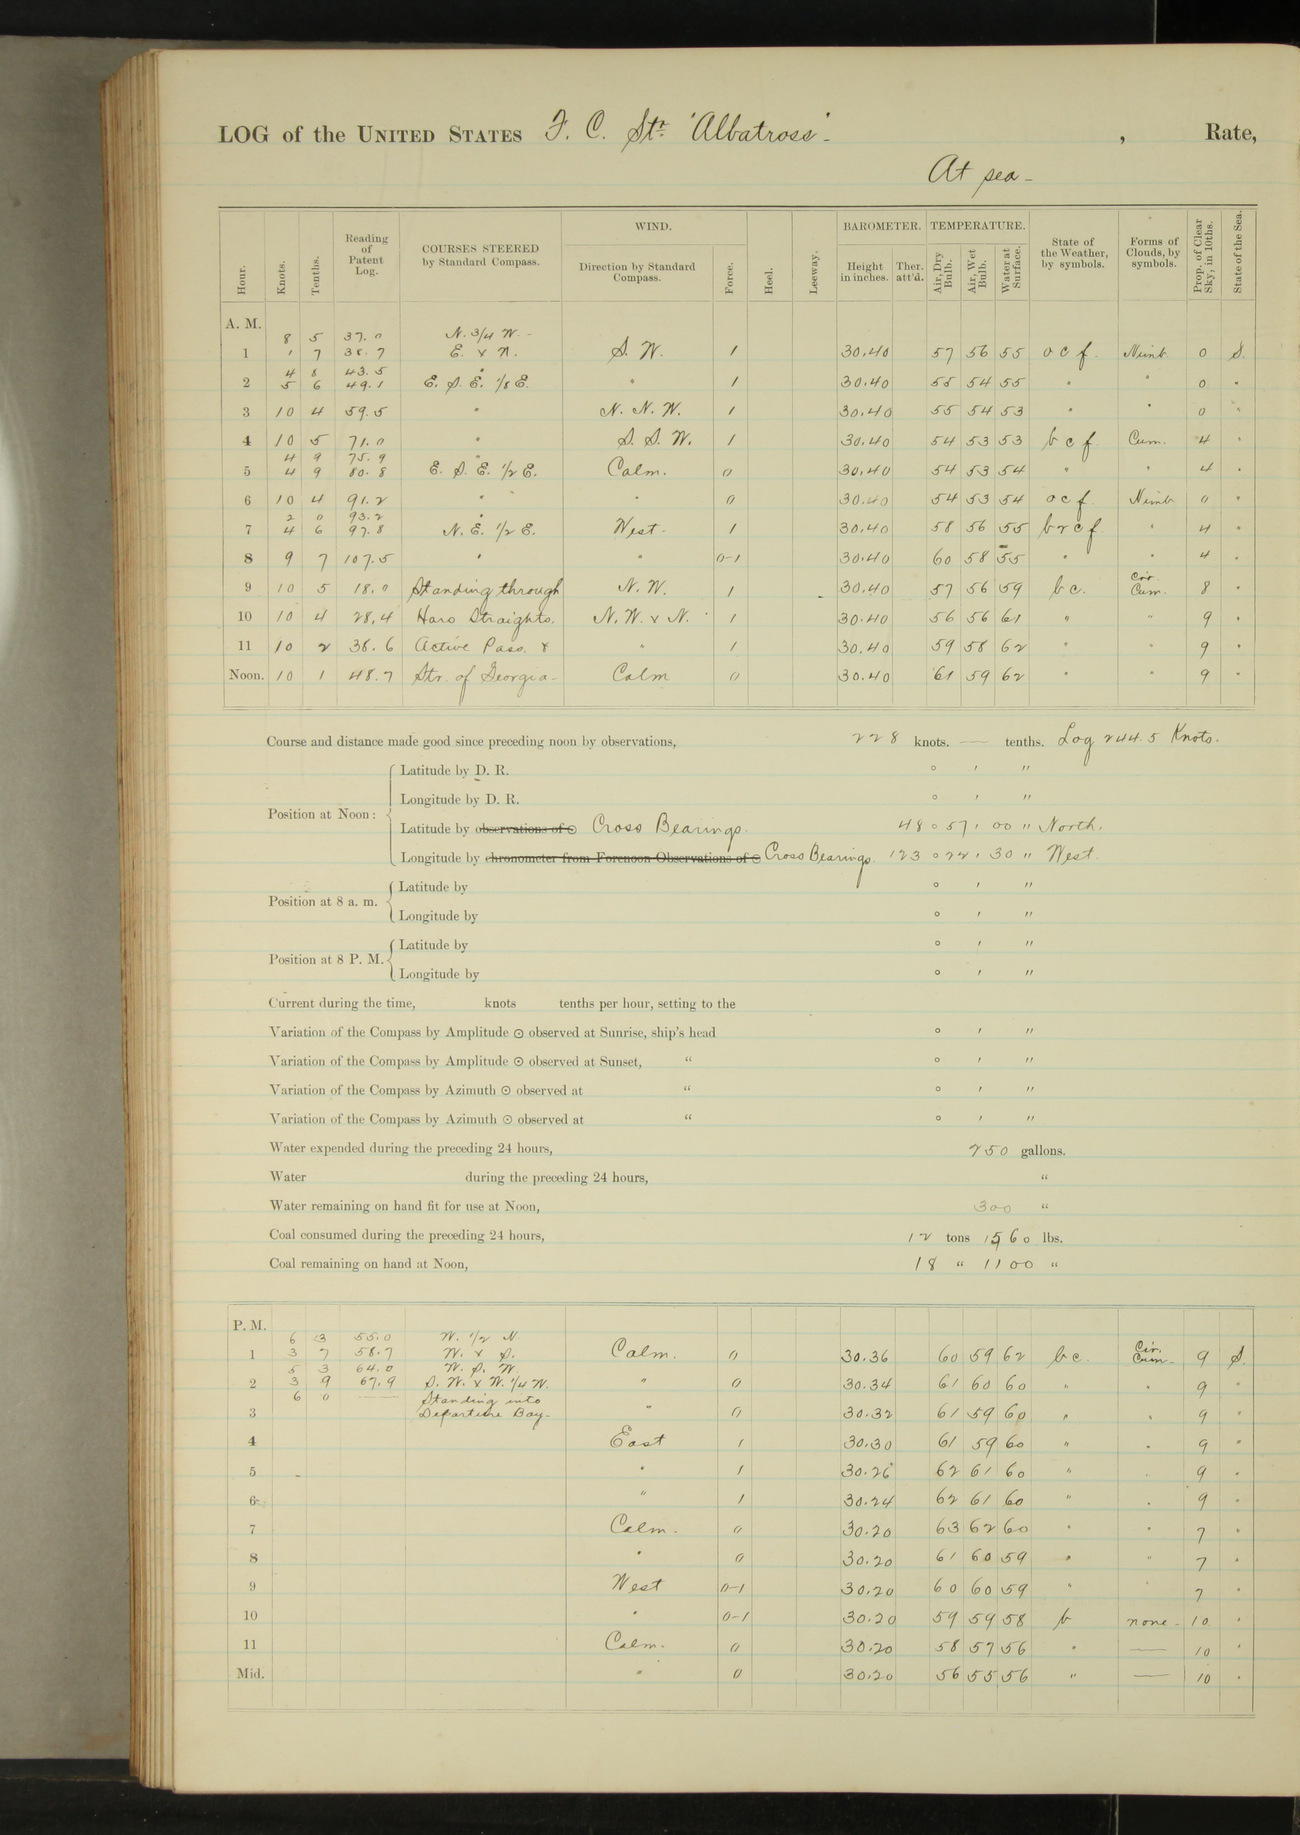 LOG of the UNITED STATES F. C. Str. 'Albatross'. , Rate,
At sea -
Hour. Knots. Tenths. Reading of Patent Log. COURSES STEERED by Standard Compass. WIND. Direction by Standard Compass. Force. Heel. Leeway. BAROMETER. Height in inches. Ther. att'd. TEMPERATURE. Air, Dry Bulb. Air, Wet Bulb. Water at Surface. State of the Weather, by symbols. Forms of Clouds, by symbols. Prop. of Clear Sky, in 10ths. State of the Sea.
A. M.
8 5 37.0 N. 3/4 W. -
1 1 7 38.7 E. x N. S. W. 1 30.40 57 56 55 o c f. Nimb. 0 S.
4 8 43.5 "
2 5 6 49.1 E. S. E. 1/8 E. " 1 30.40 55 54 55 " " 0 "
3 10 4 59.5 " N. N. W. 1 30.40 55 54 53 " " 0 "
4 10 5 71.0 " S. S. W. 1 30.40 54 53 53 b c f Cum. 4 "
4 9 75.9 "
5 4 9 80.8 E. S. E. 1/2 E. Calm. 0 30.40 54 53 54 " " 4 "
6 10 4 91.2 " " 0 30.40 54 53 54 o c f Nimb 0 "
2 0 93.2 "
7 4 6 97.8 N. E. 1/2 E. West. 1 30.40 58 56 55 b r c f. " 4 "
8 9 7 107.5 " " 0-1 30.40 60 58 55 " " 4 "
9 10 5 18.0 Standing through N. W. 1 30.40 57 56 59 b c. Cir. Cum. 8 "
10 10 4 28.4 Haro Straights. N. W. x N. 1 30.40 56 56 61 " " 9 "
11 10 2 38.6 Active Pass. & " 1 30.40 59 58 62 " " 9 "
Noon. 10 1 48.7 Str. of Georgia- Calm 0 30.40 61 59 62 " " 9 "
Course and distance made good since preceding noon by observations, 228 knots. — tenths. Log 244.5 Knots.
Latitude by D. R. ° ′ ″
Longitude by D. R. ° ′ ″
Position at Noon:
Latitude by observations of ⊙ Cross Bearings. 48 ° 57 ′ 00 ″ North.
Longitude by chronometer from Forenoon Observations of ⊙ Cross Bearings. 123 ° 22 ′ 30 ″ West.
Latitude by ° ′ ″
Position at 8 a. m.
Longitude by ° ′ ″
Latitude by ° ′ ″
Position at 8 P. M.
Longitude by ° ′ ″
Current during the time, knots tenths per hour, setting to the
Variation of the Compass by Amplitude ⊙ observed at Sunrise, ship's head ° ′ ″
Variation of the Compass by Amplitude ⊙ observed at Sunset, “ ° ′ ″
Variation of the Compass by Azimuth ⊙ observed at “ ° ′ ″
Variation of the Compass by Azimuth ⊙ observed at “ ° ′ ″
Water expended during the preceding 24 hours, 250 gallons.
Water during the preceding 24 hours, “
Water remaining on hand fit for use at Noon, 300 “
Coal consumed during the preceding 24 hours, 12 tons 1560 lbs.
Coal remaining on hand at Noon, 18 “ 1100 “
P. M.
6 3 55.0 W. 1/2 N.
1 3 7 58.7 W. x S. Calm. 0 30.36 60 59 62 b c. Cir. Cum. 9 S.
5 3 64.0 W. S. W.
2 3 9 67.9 S. W. x W. 1/4 W. " 0 30.34 61 60 60 " " 9 "
6 0 — Standing into
3 Departure Bay- " 0 30.32 61 59 60 " " 9 "
4 East 1 30.30 61 59 60 " " 9 "
5 " 1 30.26 62 61 60 " 9 "
6 " 1 30.24 62 61 60 " " 9 "
7 Calm. 0 30.20 63 62 60 " " 7 "
8 " 0 30.20 61 60 59 " " 7 "
9 West 0-1 30.20 60 60 59 " " 7 "
10 " 0-1 30.20 59 59 58 b none - 10 "
11 Calm. 0 30.20 58 57 56 " — 10 "
Mid. " 0 30.20 56 55 56 " — 10 "